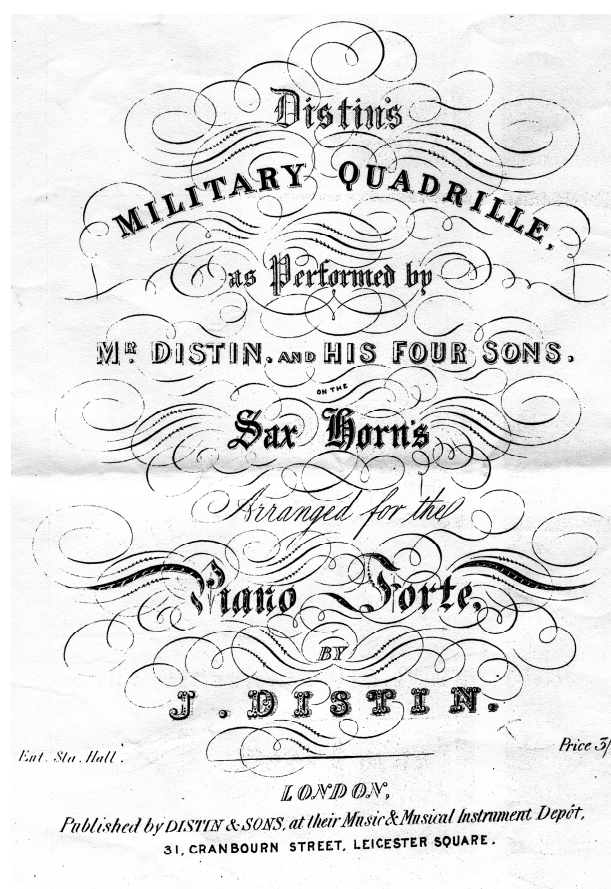 Distin's
MILITARY QUADRILLE,
as Performed by
MR. DISTIN. AND HIS FOUR SONS.
ON THE
Sax Horn's
Arranged for the
Piano Forte,
BY
J. DISTIN.
Ent. Sta. Hall.
Price 3/
LONDON,
Published by DISTIN & SONS, at their Music & Musical Instrument Depôt,
31, CRANBOURN STREET, LEICESTER SQUARE.